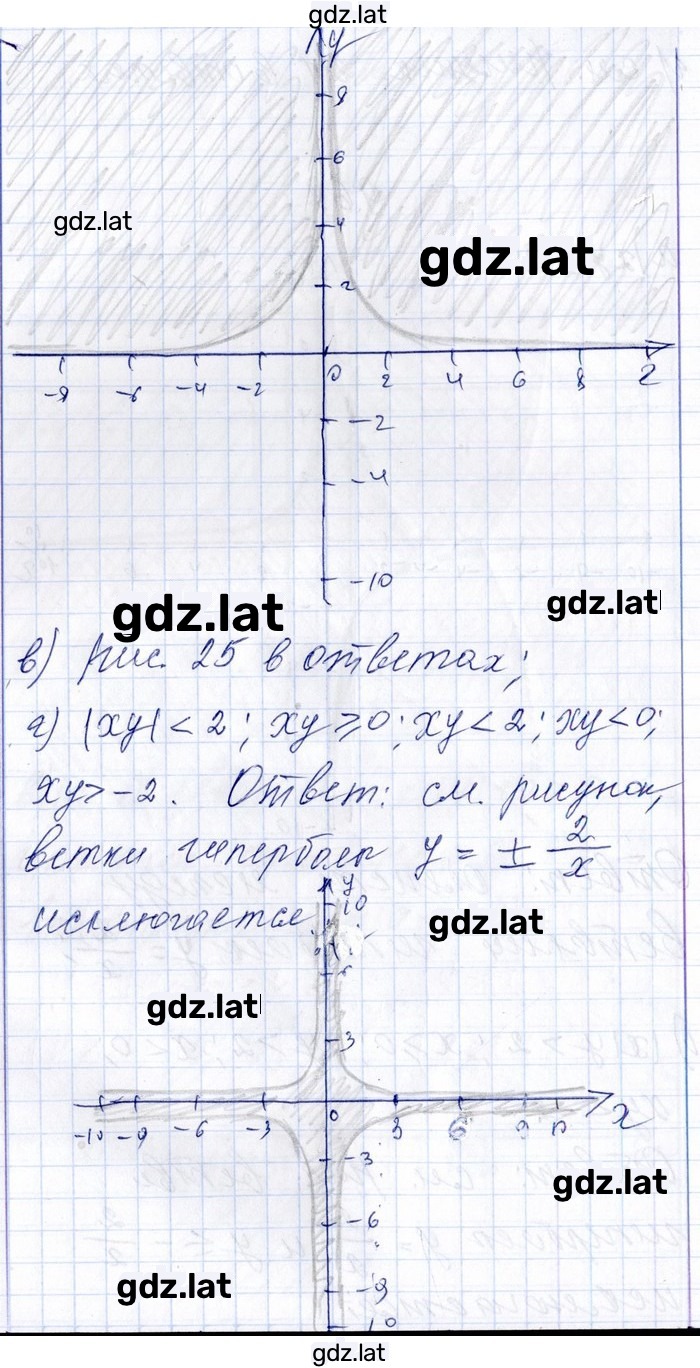 gdz.lat
y
8
6
gdz.lat
4
gdz.lat
2
-8 -6 -4 -2 0 2 4 6 8 2
-2
-4
-10
gdz.lat
gdz.lat
в) рис. 25 в ответах;
г) |xy| < 2; xy ⩾ 0; xy < 2; xy < 0;
xy > -2. Ответ: см. рисунок,
ветки гиперболы y = ± 2/x
исключается
y
10
gdz.lat
gdz.lat
3
-10 -9 -6 -3 0 3 6 9 x
-3
gdz.lat
-6
gdz.lat
-9
-10
gdz.lat